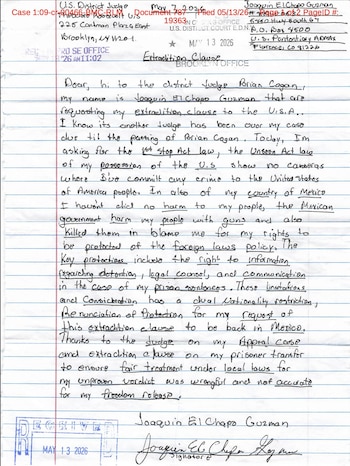 Case 1:09-cr-00466-BMC-RLM Document Filed 05/13/26 Page 1 of 2 PageID #:
19363
U.S. District Judge May 7, 2026 Joaquin El Chapo Guzman
Theodore Roosevelt U.S.
225 Cadman Plaza East U.S. DISTRICT COURT E.D.N.Y.
Brooklyn, NY 11201 MAY 13 2026 P.O. Box 8500
SE OFFICE U.S. Penitentiary
Florence, CO 81226
BROOKLYN OFFICE
Extradition Clause
Dear, hi to the district Judge Brian Cogan,
my name is Joaquin El Chapo Guzman that are
requesting my extradition clause to the U.S.A.
I know its another Judge has been over my case
due til the passing of Brian Cogan. Today, I'm
asking for the 1st Step Act law, the Act law
of my possession of the U.S show no cameras
where I've commit any crime to the United States
of America people. In also of my country of Mexico
I havent did no harm to my people, the Mexican
government harm my people with guns and also
killed them in blame me for my rights to
be protected of the foreign laws policy. The
Key protections, include the right to information
regarding detention, legal counsel, and communication
in the case of my prison sentences. These
and Consideration has a dual Nationality restriction,
Renunciation of Protection for my request of
this extradition clause to be back in Mexico.
Thanks to the Judge on my Appeal case
and extradition clause on my prisoner transfer
to ensure fair treatment under local laws for
my unproven verdict was wrongful and not accurate
for my freedom release.
Joaquin El Chapo Guzman
MAY 13 2026
Joaquin El Chapo Guzman
Signature